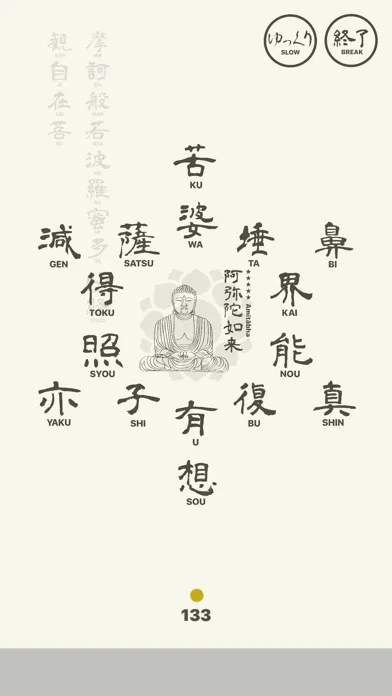 ゆっくり 終了
SLOW BREAK
摩訶般若波羅蜜多
観自在菩
苦
KU
婆
WA
減 薩 埵 鼻
GEN SATSU TA BI
得 界
TOKU KAI
阿弥陀如来
★★★★★ Amitābha
照 能
SYOU NOU
亦 子 有 復 真
YAKU SHI U BU SHIN
想
SOU
133